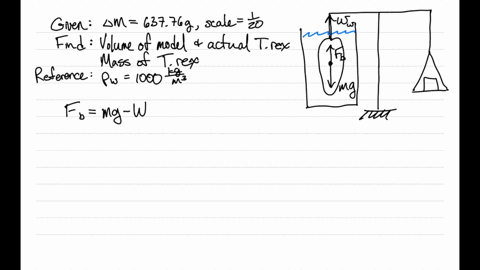 Given: ΔM = 637.76g, scale = 1/20
Find: Volume of model & actual T.rex
Mass of T.rex
Reference: ρw = 1000 kg/m³
F_b = mg - W
F_b
mg